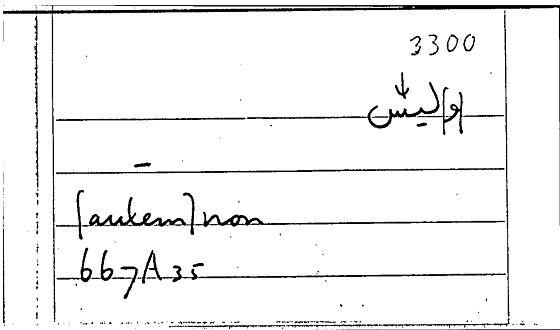 3300
↓
[و]ليس
–
[autem] non
667A35